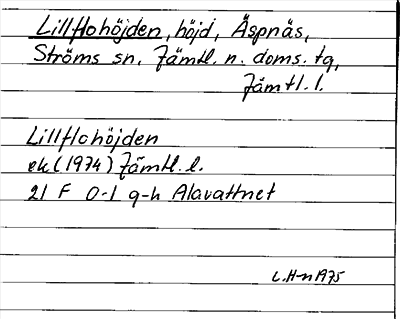 Lillflohöjden, höjd, Äspnäs,
Ströms sn. Jämtl. n. doms. tg,
Jämtl. l.
Lillflohöjden
ek (1974) Jämtl. l.
21 F 0-1 g-h Alavattnet
L.H-n 1975